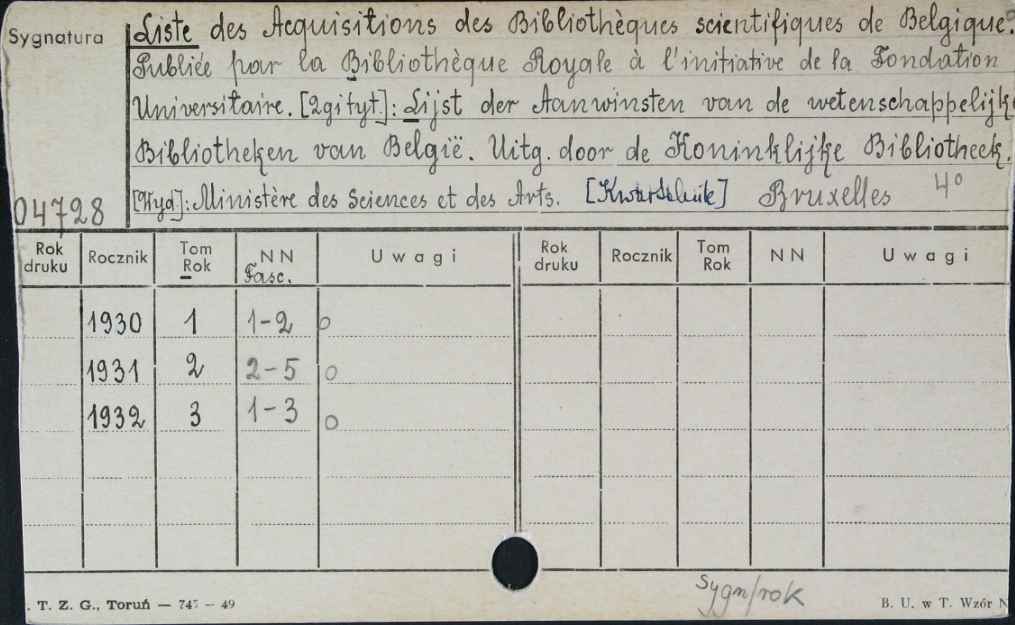 Sygnatura
Liste des Acquisitions des Bibliothèques scientifiques de Belgique.
Publiée par la Bibliothèque Royale à l'initiative de la Fondation
Universitaire. [2gi tyt]: Lijst der Aanwinsten van de wetenschappelijke
Bibliotheken van België. Uitg. door de Koninklijke Bibliotheek.
[Wyd]: Ministère des Sciences et des Arts. [Kwartalnik] Bruxelles 4°
04728
Rok druku Rocznik Tom Rok NN Fasc. Uwagi Rok druku Rocznik Tom Rok NN Uwagi
1930 1 1-2 o
1931 2 2-5 o
1932 3 1-3 o
Sygn/rok
. T. Z. G., Toruń — 747 — 49 B. U. w T. Wzór N